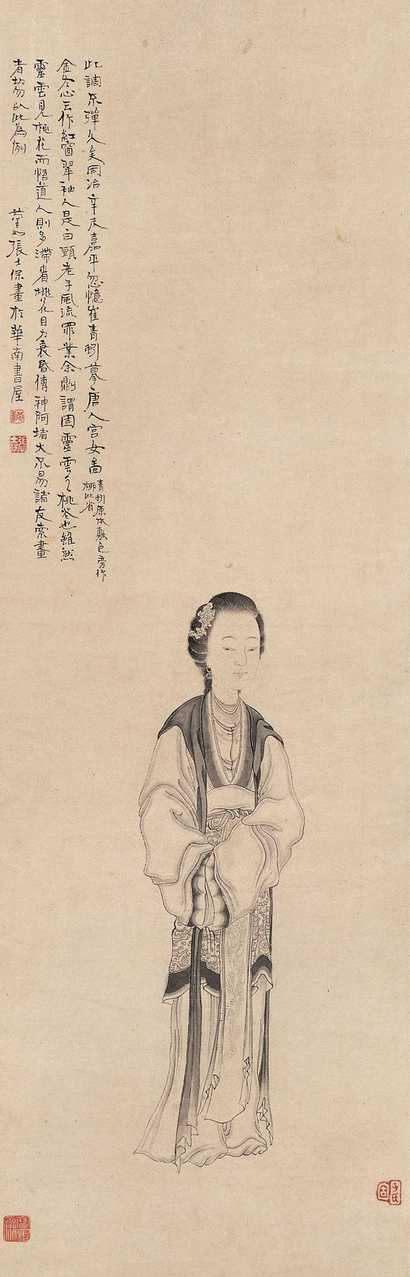 此調不彈久矣同治辛未嘉平忽憶崔青蚓摹唐人宮女圖
青蚓原本設色旁作
桃此省
金冬心云作紅窗翠袖人是白頭老子風流罪業余則謂因靈雲之桃花也雖然
靈雲見桃花而悟道人則多滯者桃花目力衰昏傳神阿堵大不易諸友索畫
者切勿以此為例
菊如張士保畫於華南書屋